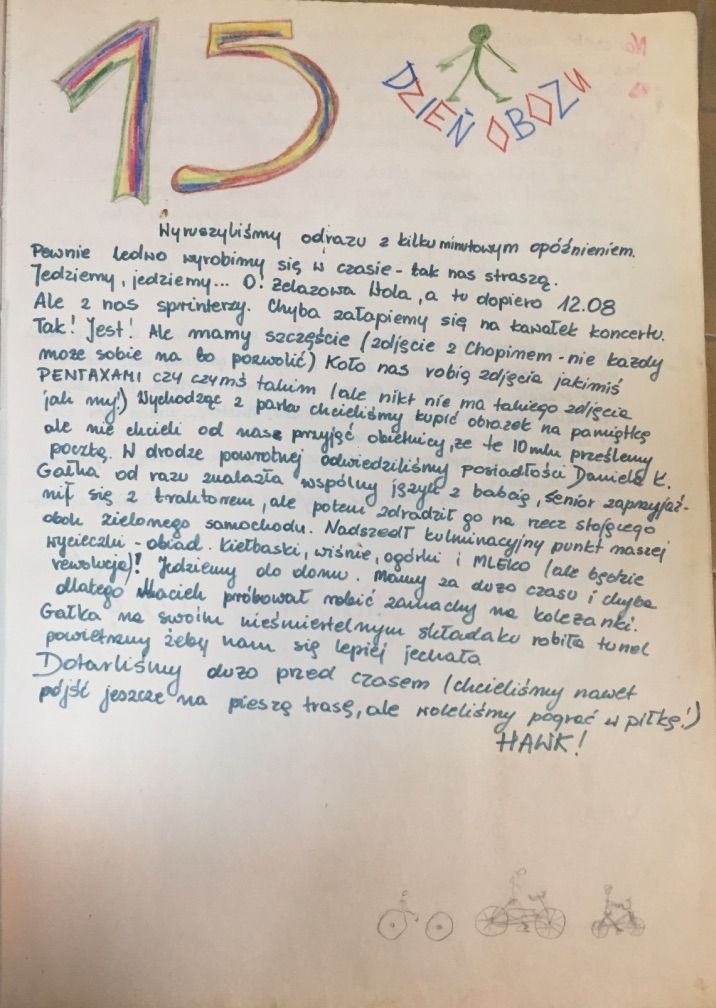 15 DZIEŃ OBOZU
Wyruszyliśmy odrazu z kilku minutowym opóźnieniem.
Pewnie ledwo wyrobimy się w czasie - tak nas straszą.
Jedziemy, jedziemy... O! Żelazowa Wola, a tu dopiero 12.08
Ale z nas sprinterzy. Chyba załapiemy się na kawałek koncertu.
Tak! Jest! Ale mamy szczęście (zdjęcie z Chopinem - nie każdy
może sobie na to pozwolić) Koło nas robią zdjęcia jakimiś
PENTAXAMI czy czymś takim (ale nikt nie ma takiego zdjęcia
jak my!) Wychodząc z parku chcieliśmy kupić obrazek na pamiątkę
ale nie chcieli od nas przyjąć obietnicy, że te 10 mln prześlemy
pocztą. W drodze powrotnej odwiedziliśmy posiadłości Daniela K.
Gałka od razu znalazła wspólny język z babcią, senior zaprzyjaź-
nił się z traktorem, ale potem zdradził go na rzecz stojącego
obok zielonego samochodu. Nadszedł kulminacyjny punkt naszej
wycieczki - obiad. Kiełbaski, wiśnie, ogórki i MLEKO (ale będzie
rewolucja)! Jedziemy do domu. Mamy za dużo czasu i chyba
dlatego Maciek próbował robić zamachy na koleżanki.
Gałka na swoim nieśmiertelnym składaku robiła tunel
powietrzny żeby nam się lepiej jechało
Dotarliśmy dużo przed czasem (chcieliśmy nawet
pójść jeszcze na pieszą trasę, ale woleliśmy pograć w piłkę!)
HAWK!